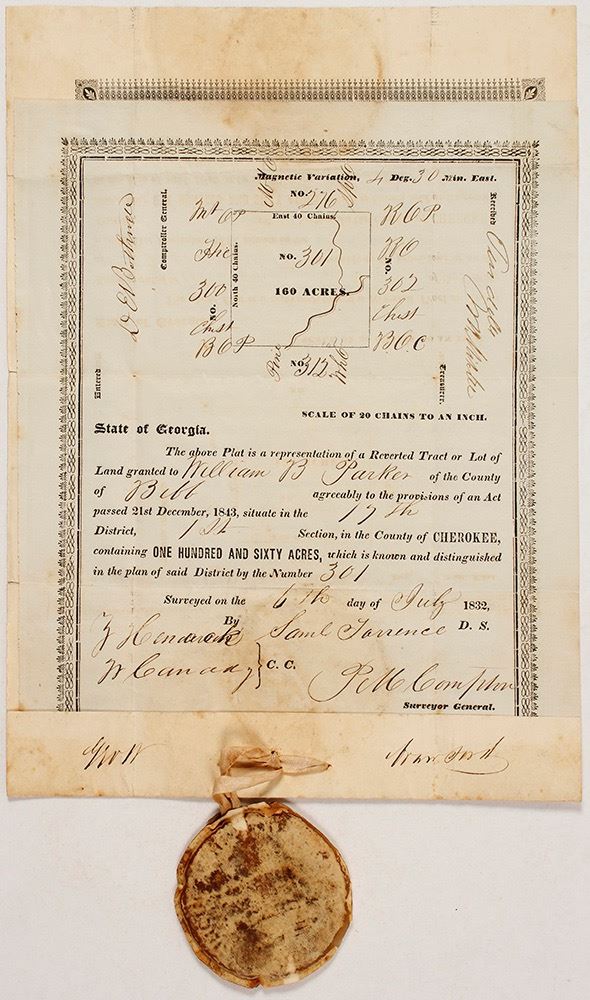 Magnetic Variation, 4 Deg. 30 Min. East.
NO. 276
East 40 Chains.
Comptroller General.
Entered
North 40 Chains.
NO. 300
Chst
B O P
NO. 301
160 ACRES.
R O P
R O
NO. 302
Chst
B O C
Pine
NO. 312
Receited
Treasurer.
SCALE OF 20 CHAINS TO AN INCH.
State of Georgia.
The above Plat is a representation of a Reverted Tract or Lot of
Land granted to William B Parker of the County
of Bibb agreeably to the provisions of an Act
passed 21st December, 1843, situate in the 17th
District, 1st Section, in the County of CHEROKEE,
containing ONE HUNDRED AND SIXTY ACRES, which is known and distinguished
in the plan of said District by the Number 301
Surveyed on the 6th day of July 1832,
By Saml Torrence D. S.
W Canady } C. C.
Compton
Surveyor General.
Geo W Crawford